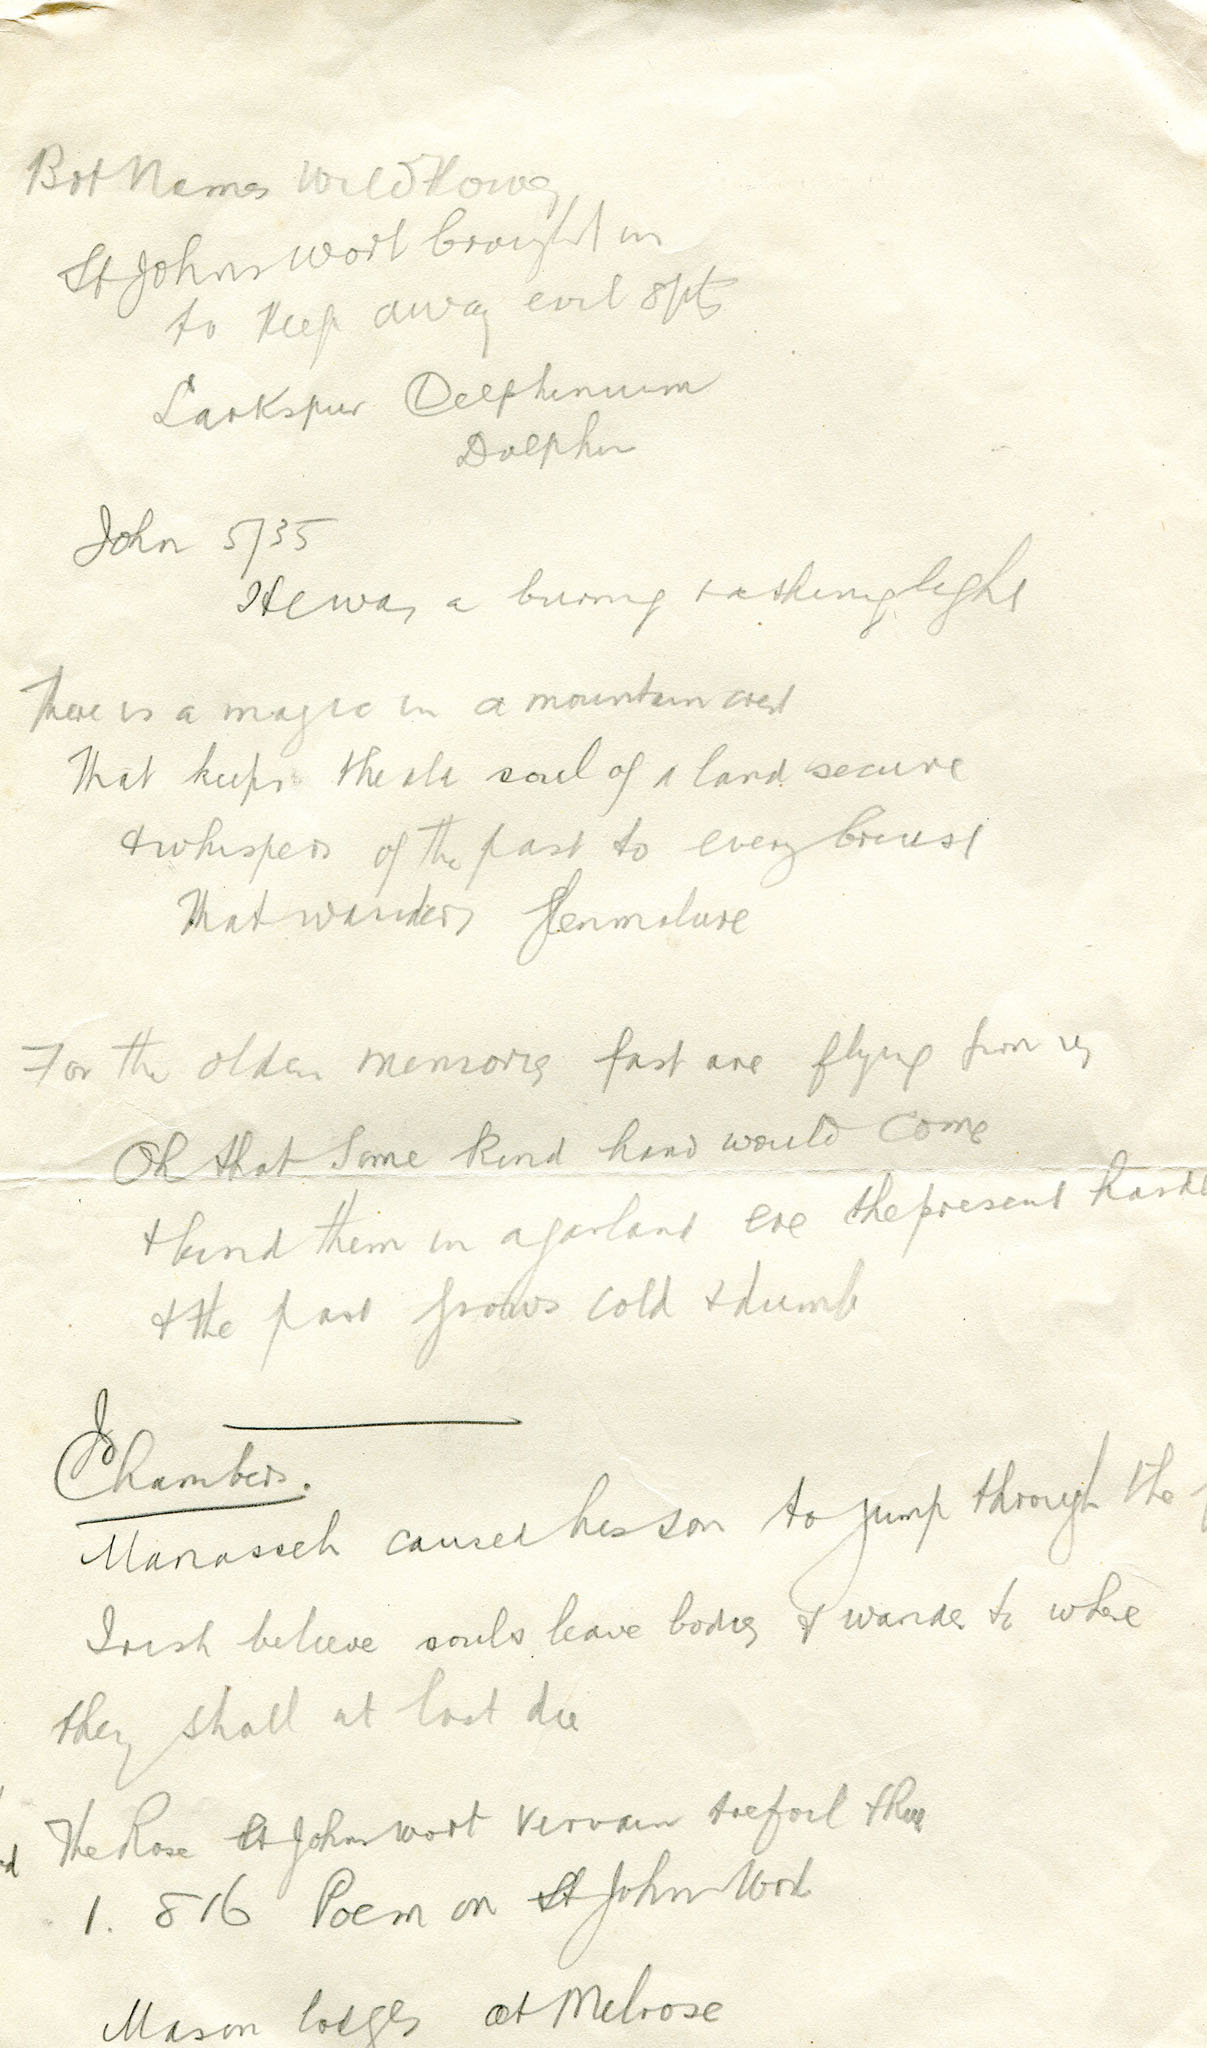 Bot Names Wild Flowers
St Johns Wort brought in
to keep away evil spts
Larkspur Delphinium
Dolphin
John 5/35
He was a burning & a shining light
There is a magic in a mountain crest
That keeps the old soul of a land secure
& whispers of the past to every breast
That wanders Glenmalure
For the olden memories fast are flying from us
Oh that some kind hand would come
& bind them in a garland ere the present hardens
& the past grows cold & dumb
Jo
Chambers.
Manasseh caused his son to jump through the
Irish believe souls leave bodies & wander to where
they shall at last die
The Rose St Johns wort vervain trefoil the
1. 816 Poem on St John Wort
Mason lodges at Melrose